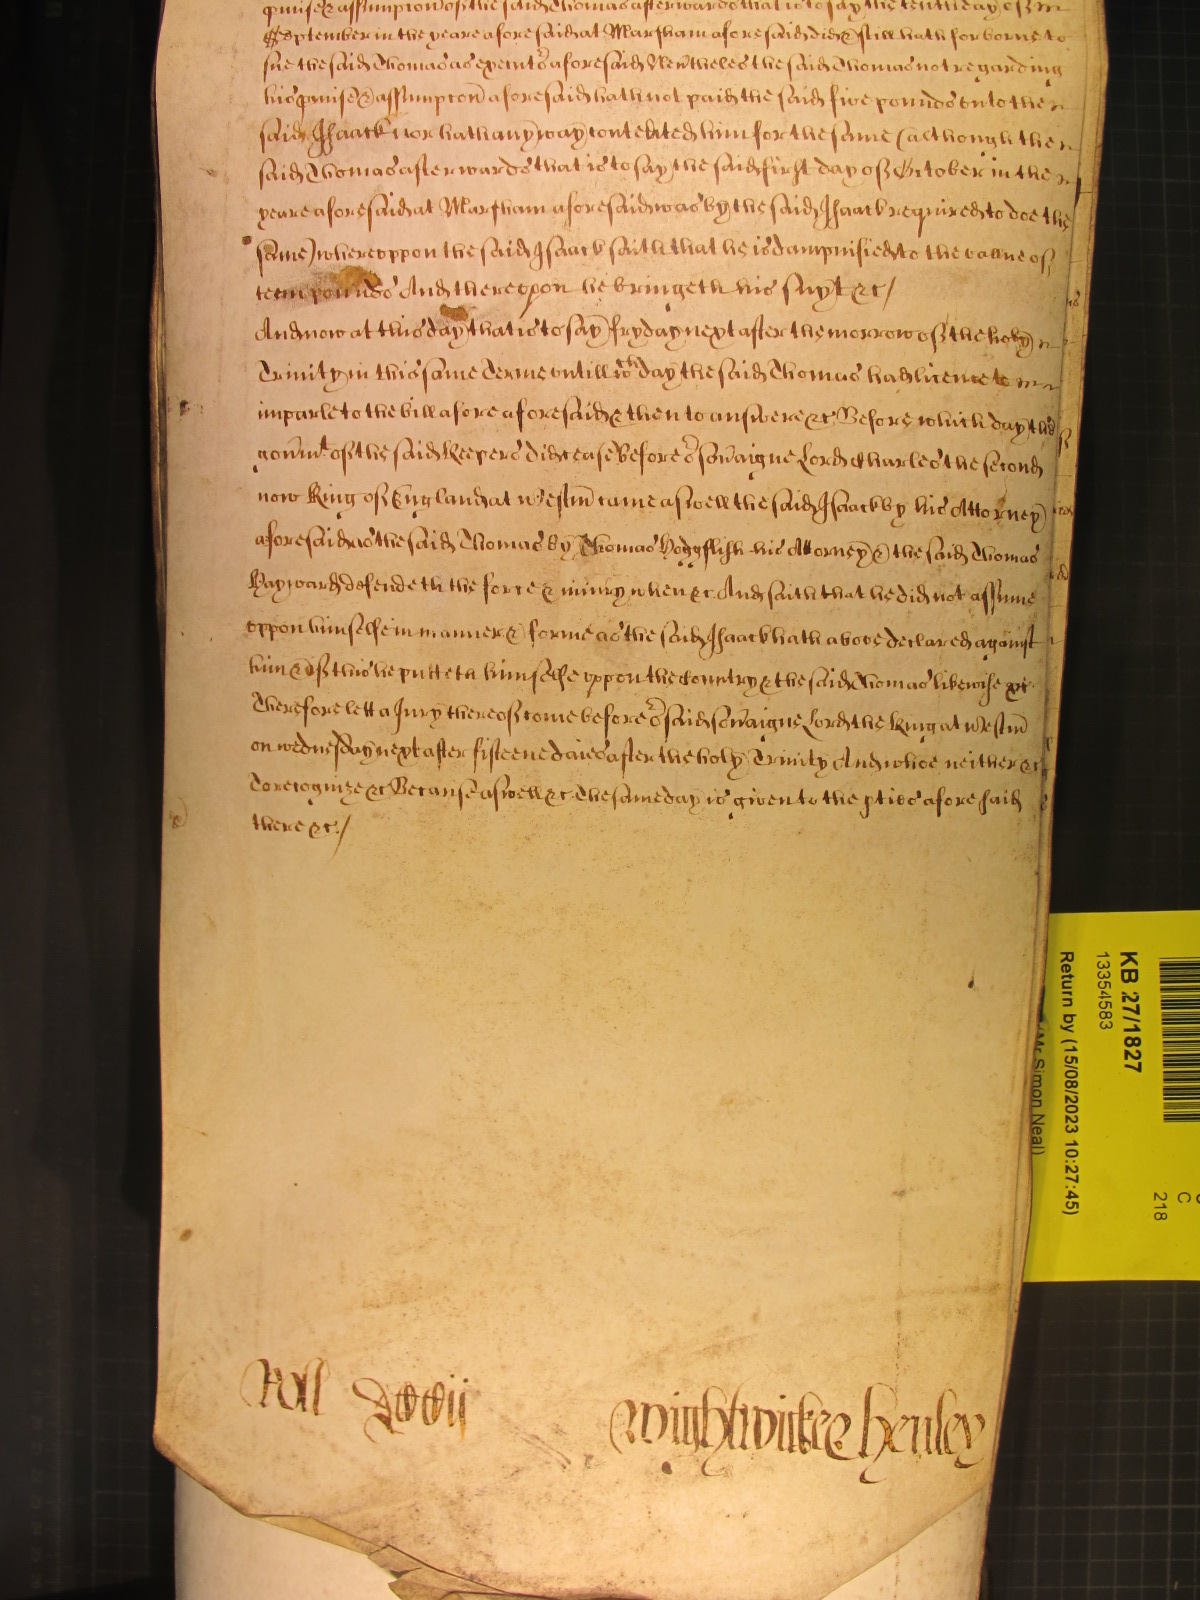 pmise & assumption of the said Thomas afterwards that is to say the tenth day of
September in the yeare aforesaid at Marsham aforesaid did & still hath forborne to
sue the said Thomas as aforesaid Nevtheles the said Thomas not regarding
his pmise & assumpcon aforesaid hath not paid the said five pounds unto the
said Isaack nor hath any way contented him for the same (although the
said Thomas afterwards that is to say the said first day of October in the
yeare aforesaid at Marsham aforesaid was by the said Isaack required to doe the
same) whereoppon the said Isaack saith that he is dampnified to the value of
tenn pounds And thereopon he bringeth his suyt &c/
And now at this day that is to say fryday next after the morrow of the holy
Trinity in this same Terme untill wch day the said Thomas had licence to
imparle to the bill afore aforesaid & then to answere &c Before which day the
of the said Keepers did cease Before or sovaigne Lord Charles the second
now King of England at Westm came aswell the said Isaack by his Attorney
aforesaid as the said Thomas by Thomas his Attorney & the said Thomas
Hayward defendeth the force & iniury when &c And saith that he did not assume
oppon himselfe in manner & forme as the said Isaack hath above declared against
him & of this he putteth himselfe oppon the Country & the said Thomas likewise &c
Therefore lett a Jury thereof come before or said sovaigne Lord the King at Westm
on wednesday next after fifteene daies after the holy Trinity And whoe neither &c
To recognize &c Because aswell &c The same day is given to the pties aforesaid
there &c/
Roll
Wightwicke & Henley
KB 27/1827
13354583
Return by (15/08/2023 10:27:45)
(Mr Simon Neal)
C
218